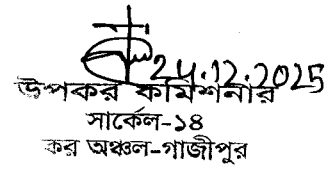 24.12.2025
উপকর কমিশনার
সার্কেল-১৪
কর অঞ্চল-গাজীপুর